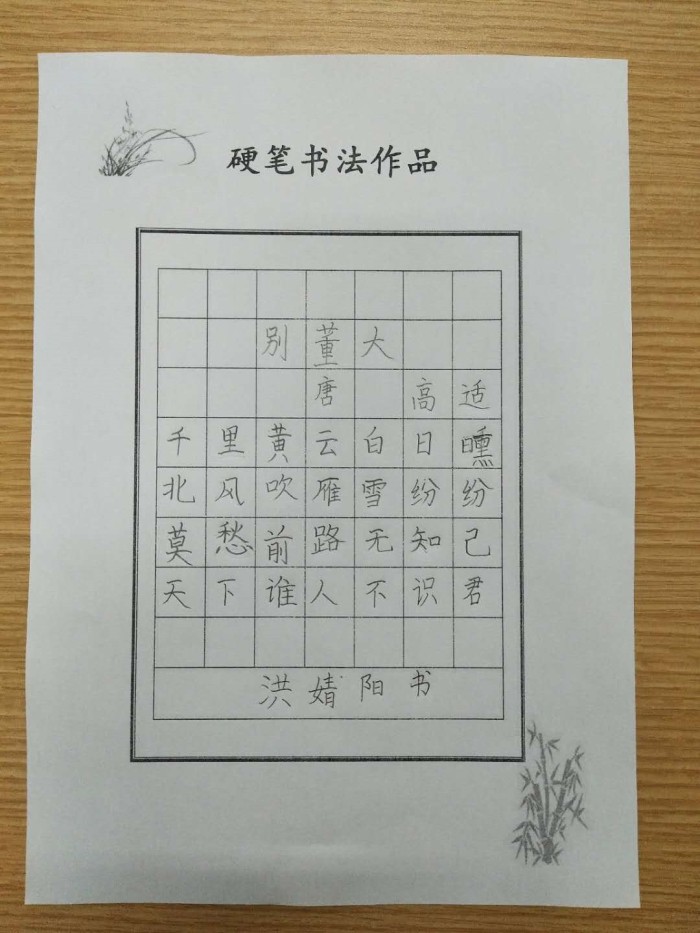 硬笔书法作品
别董大
唐 高适
千里黄云白日曛
北风吹雁雪纷纷
莫愁前路无知己
天下谁人不识君
洪婧阳书